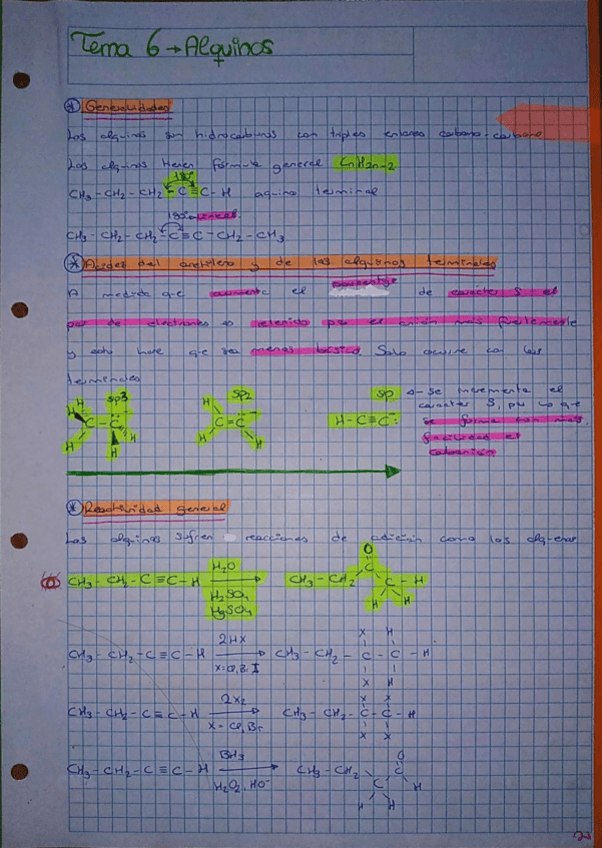 Tema 6 → Alquinos
* Generalidades
Los alquinos son hidrocarburos con triples enlaces carbono-carbono
Los alquinos tienen fórmula general CnH2n-2
180°
CH3-CH2-CH2-C≡C-H alquino terminal
180° lineal
CH3-CH2-CH2-C≡C-CH2-CH3
* Acidez del acetileno y de los alquinos terminales
A medida que aumenta el porcentaje de carácter S el
par de electrones es retenido por el anión más fuertemente
y esto hace que sea menos básico. Solo ocurre con los
terminales
sp3 sp2 sp
H-C≡C:⁻
Se incrementa el
carácter S, por lo que
se forma con más
facilidad el
carbanión
* Reactividad general
Los alquinos sufren reacciones de adición como los alquenos
CH3-CH2-C≡C-H H2O H2SO4 HgSO4 CH3-CH2 C O C-H H H
CH3-CH2-C≡C-H 2HX CH3-CH2-C-C-H X H X H
CH3-CH2-C≡C-H 2X2 X=Cl,Br CH3-CH2-C-C-H X X X X
CH3-CH2-C≡C-H BH3 H2O2, HO⁻ CH3-CH2 C C O H H H